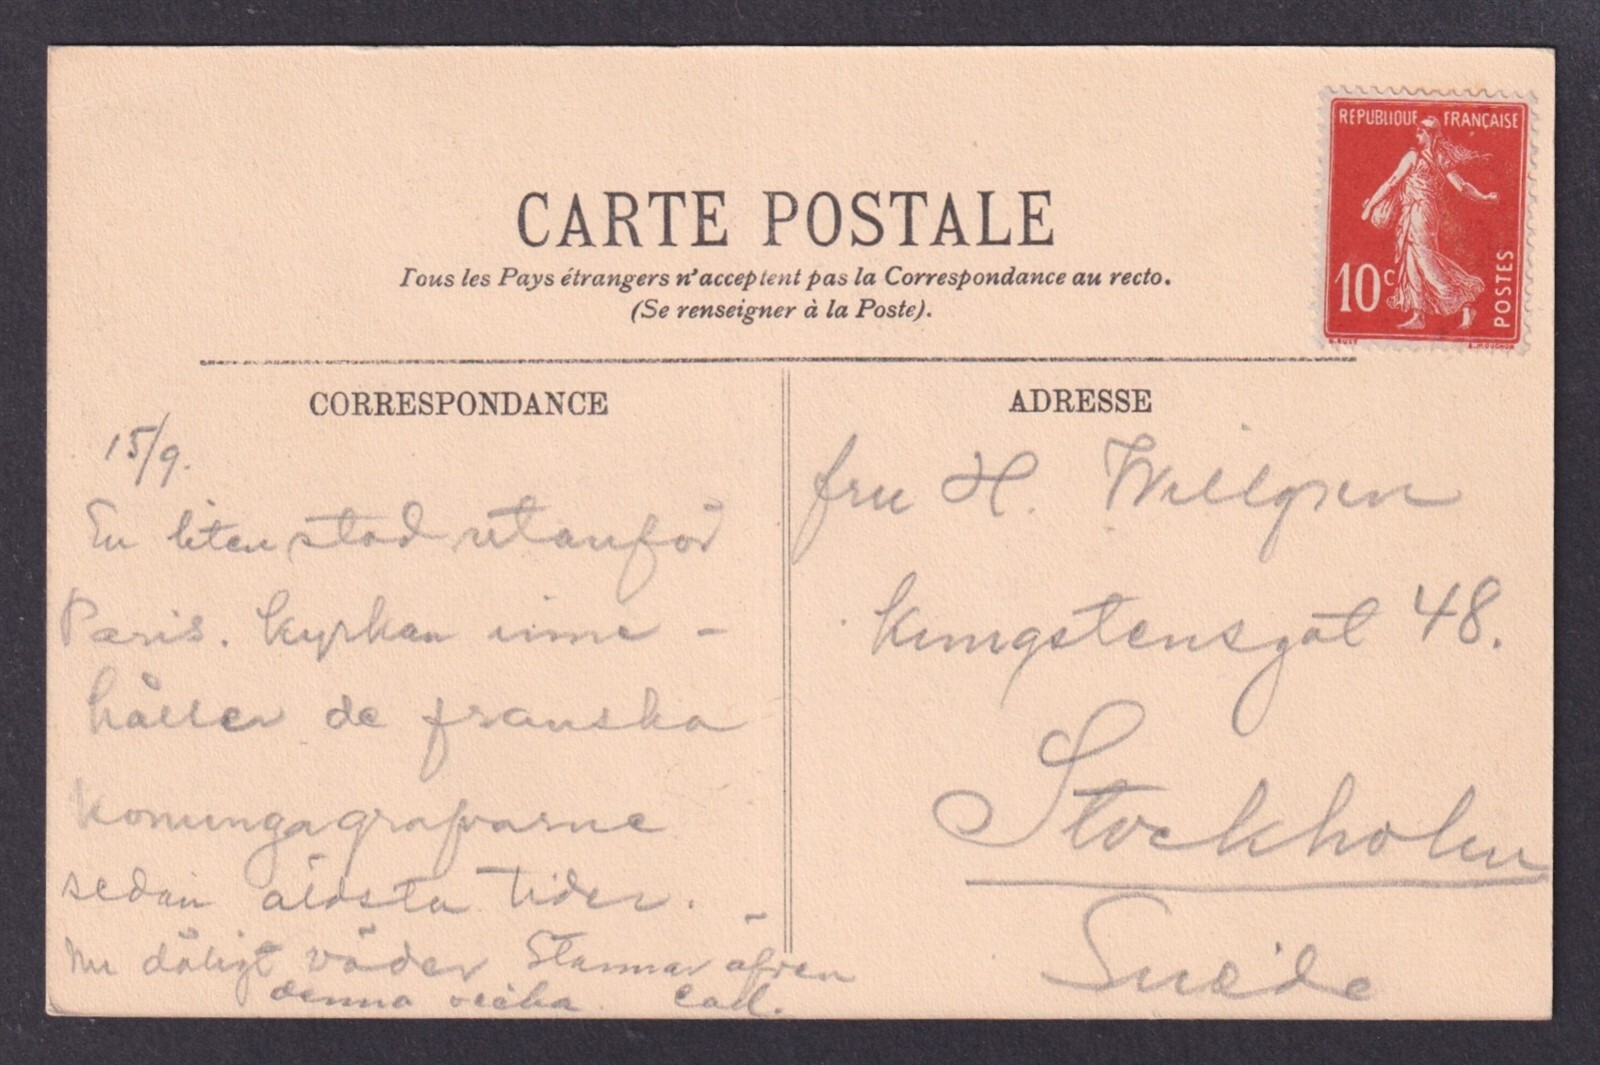 REPUBLIQUE FRANÇAISE
10c
POSTES
CARTE POSTALE
Tous les Pays étrangers n'acceptent pas la Correspondance au recto.
(Se renseigner à la Poste).
CORRESPONDANCE
15/9.
En liten stad utanför
Paris. Kyrkan inne-
håller de franska
konungagrafvarne
sedan äldsta tider. -
Nu dåligt väder Stannar äfven
denna vecka.
ADRESSE
fru H. Willgren
Kungstensgat 48.
Stockholm
Suède